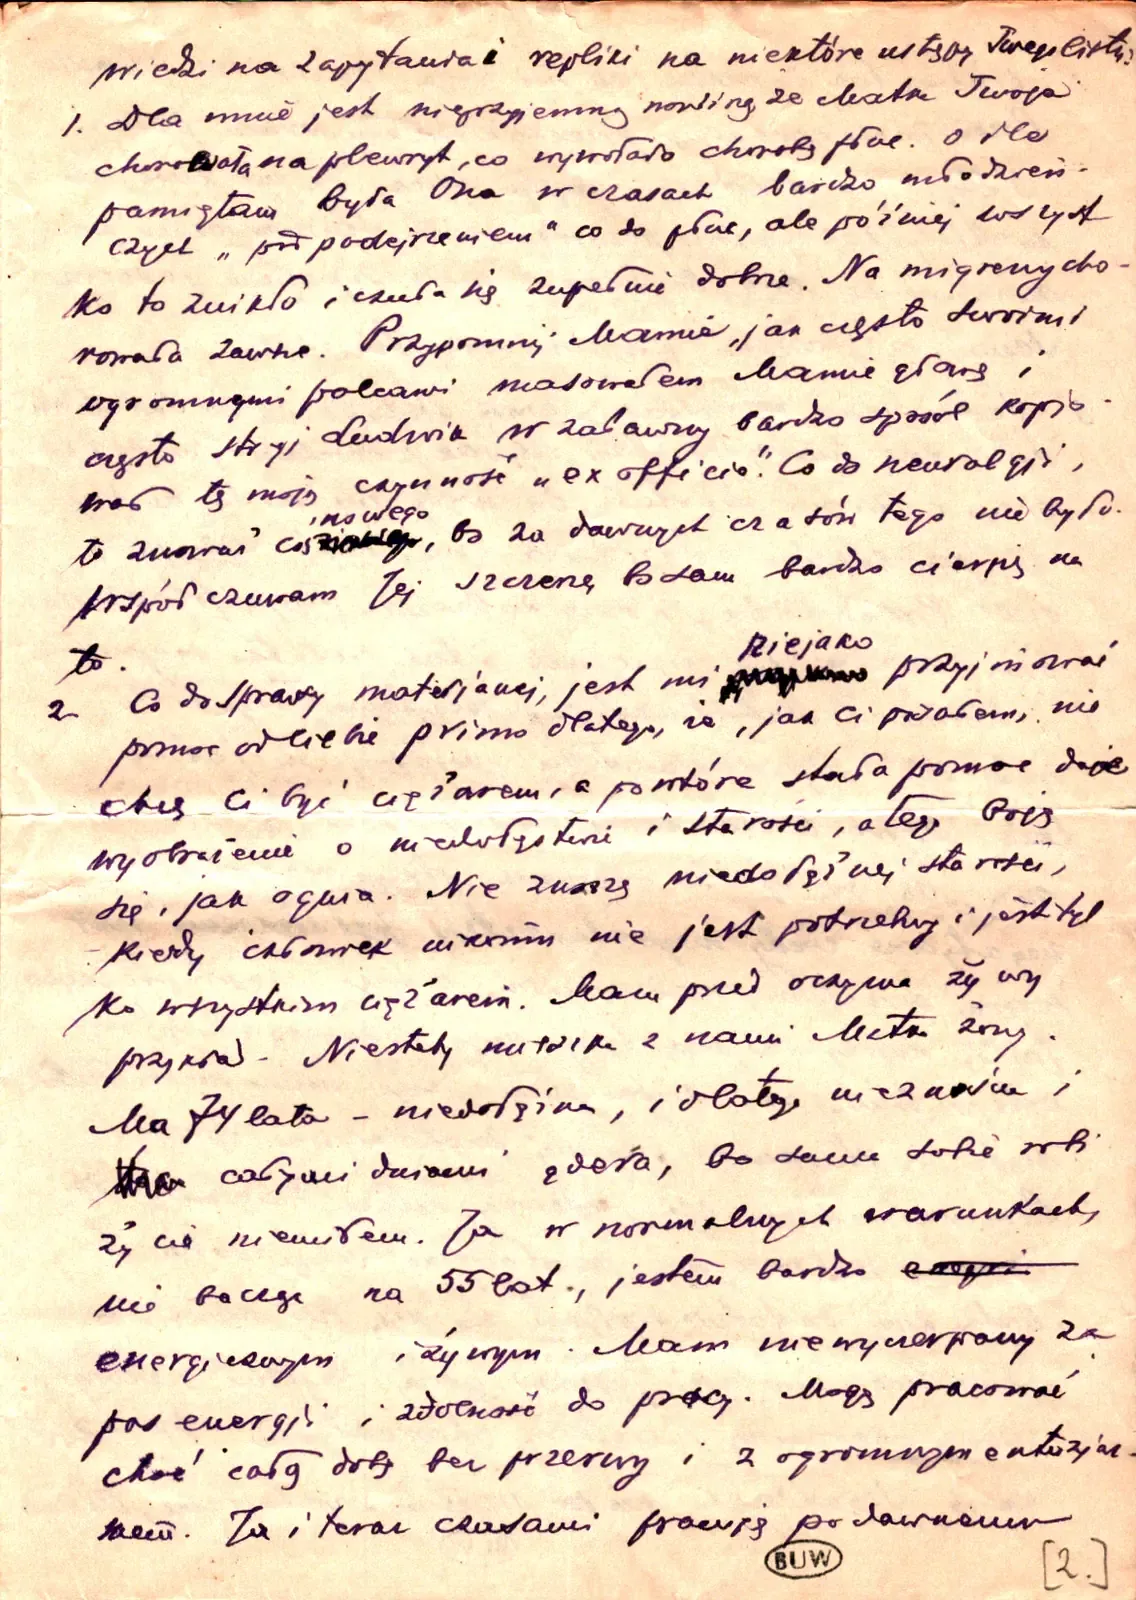 wiedzi na zapytania i repliki na niektóre ustępy Twego listu:
1. Dla mnie jest nieprzyjemną nowiną że Matka Twoja
chorowała na plewryt, co wywołało chorobę płuc. O ile
pamiętam była Ona w czasach bardzo młodzień-
czych „pod podejrzeniem" co do płuc, ale później wszyst
ko to znikło i czuła się zupełnie dobrze. Na migreny cho-
rowała zawsze. Przypomnij Mamie, jak często swoimi
ogromnymi palcami masowałem Mamie głowę i
często stryj Ludwik w zabawny bardzo sposób kopjo-
wał tę moją czynność „ex officio". Co do neuralgji,
to znowuż coś nowego, bo za dawnych czasów tego nie było.
Współczuwam Jej szczerze bo sam bardzo cierpię na
to.
2. Co do sprawy materjalnej, jest mi niejako przyjmować
pomoc od Ciebie primo dlatego, że, jak Ci pisałem, nie
chcę Ci być ciężarem, a powtóre stała pomoc daje
wyobrażenie o niedołęstwie i starości, a tego boję
się, jak ognia. Nie znoszę niedołężnej starości,
kiedy człowiek nikomu nie jest potrzebny i jest tyl
ko wszystkim ciężarem. Mam przed oczyma żywy
przykład - Niestety mieszka z nami Matka żony.
Ma 74 lata - niedołężna, i dlatego nieznośna i
całymi dniami gdera, bo sama sobie robi
życie niemiłem. Ja w normalnych warunkach,
nie bacząc na 55 lat, jestem bardzo
energicznym i żywym. Mam niewyczerpany za
pas energji i zdolność do pracy. Mogę pracować
choć całą dobę bez przerwy i z ogromnym entuzjaz-
mem. Ja i teraz czasami pracuję po dawnemu
BUW
[2.]